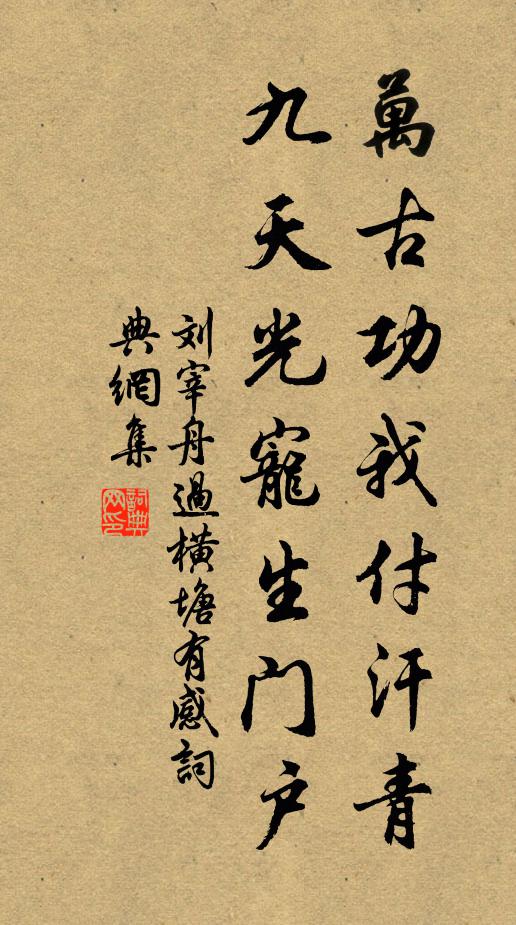 萬古功我付汗青
九天光寵生門户
刘宰舟過橫塘有感詞
典網集
詞典網印